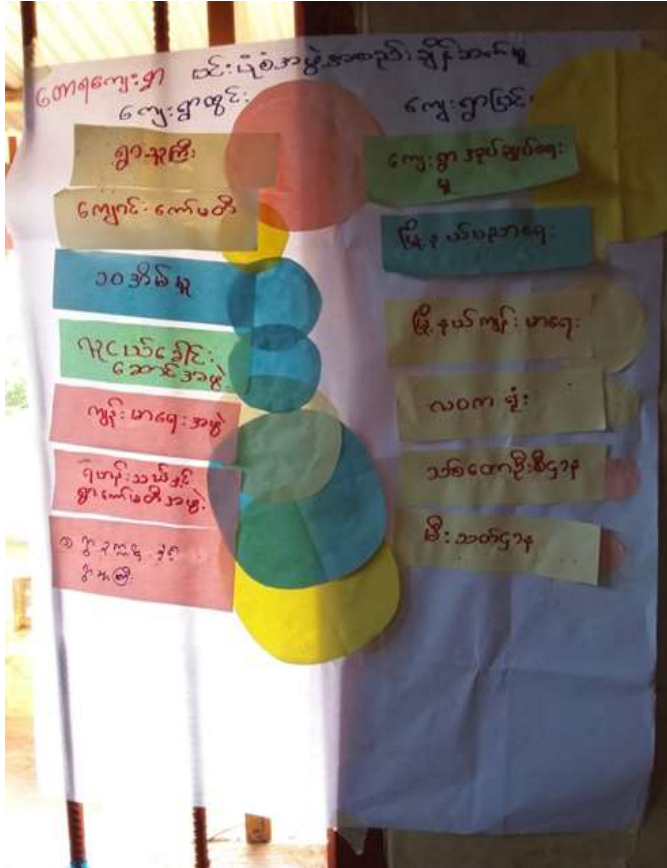 တောရကျေးရွာ ဝင်းပုံစံအဖွဲ့အစည်းချိတ်ဆက်မှု
ကျေးရွာတွင်း
ရွာသူကြီး
ကျောင်းကော်မတီ
၁၀အိမ်မှူ
လူငယ်ခေါင်း
ဆောင်အဖွဲ့
ကျန်းမာရေးအဖွဲ့
ရွာကော်မတီအဖွဲ့
ကျေးရွာပြင်
ကျေးရွာအုပ်ချုပ်ရေး
မှူ
မြို့နယ်ပညာရေး
မြို့နယ်ကျန်းမာရေး
လဝကရုံး
သစ်တောဦးစီဌာန
မီးသတ်ဌာန